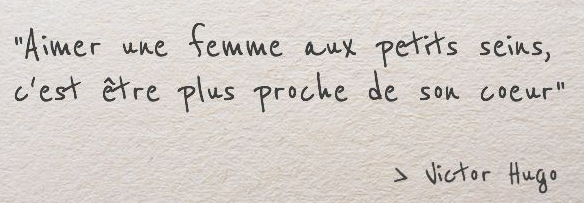 "Aimer une femme aux petits seins,
c'est être plus proche de son coeur"
> Victor Hugo